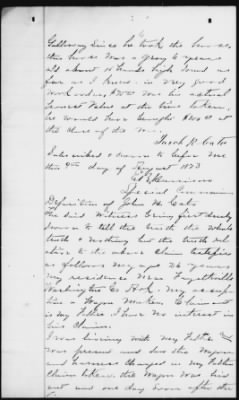 Galloway since he took the horse,
this horse was a gray 6 years
old about 15 hands high sound as
far as I know in very good
work order, was his actual
lowest value at the time taken,
he would have brought at
the close of the war.
Jacob R. Cato
Subscribed & sworn to before me
this 9th day of August 1873
Special Commissioner
Deposition of John W. Cato
The said witness being first duly
sworn to tell the truth the whole
truth & nothing but the truth rel-
ative to the above claim testifies
as follows my age 26 years
my residence near Fayetteville
Washington Co Ark. my occupa-
tion a Wagon Maker Claimant
is my Father I have no interest in
his Claim.
I was living with my Father &
was present and saw the Wagon
and harness charged in my Father
Claim taken, the Wagon was hid
out and one day soon after the